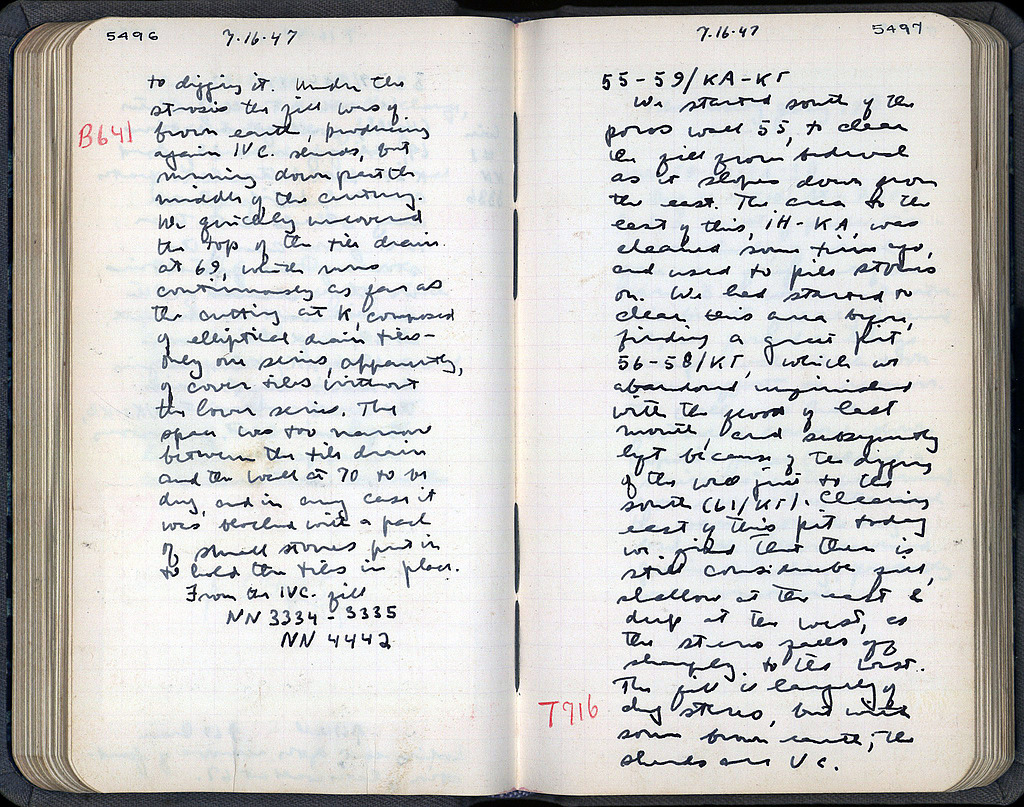 5496
7.16.47
to digging it. Under the
strosis the fill was of
B641
brown earth, producing
again IVC. sherds, but
running down past the
middle of the century.
We quickly uncovered
the top of the tile drain
at 69, which runs
continuously as far as
the cutting at K, composed
of elliptical drain tiles –
only one series, apparently,
of cover tiles without
the lower series. The
space was too narrow
between the tile drain
and the wall at 70 to be
dug, and in any case it
was blocked with a pack
of small stones put in
to hold the tiles in place.
From the IVC. fill
NN 3334 - 3335
NN 4442
7.16.47
5497
55-59/ΚΑ-ΚΓ
We started south of the
poros wall 55, to clear
the fill from bedrock
as it slopes down from
the east. The area to the
east of this, ΙΗ-ΚΑ, was
cleared some time ago,
and used to pile stones
on. We had started to
clear this area before,
finding a great pit
56-58/ΚΓ, which we
abandoned unfinished
with the flood of last
month, and subsequently
left because of the digging
of the well just to the
south (61/ΚΓ). Clearing
east of this pit today
we find that there is
still considerable fill,
shallow at the east &
deep at the west, as
the stereo falls off
sharply to the west.
The fill is largely of
T716
dug stereo, but with
some brown earth; the
sherds are V c.